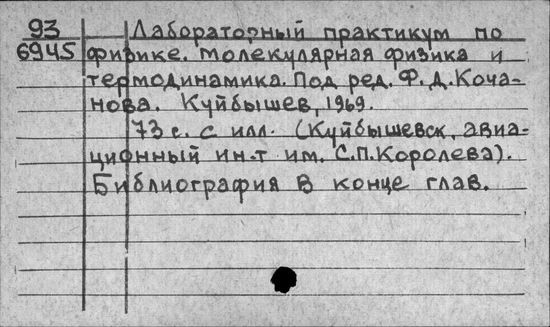 93 Лабораторный практикум по
6945 физике. Молекулярная физика и
термодинамика. Под ред. Ф. Д. Коча-
нова. Куйбышев, 1969.
73 с. с илл. (Куйбышевск. авиа-
ционный ин-т им. С.П.Королева).
Библиография в конце глав.